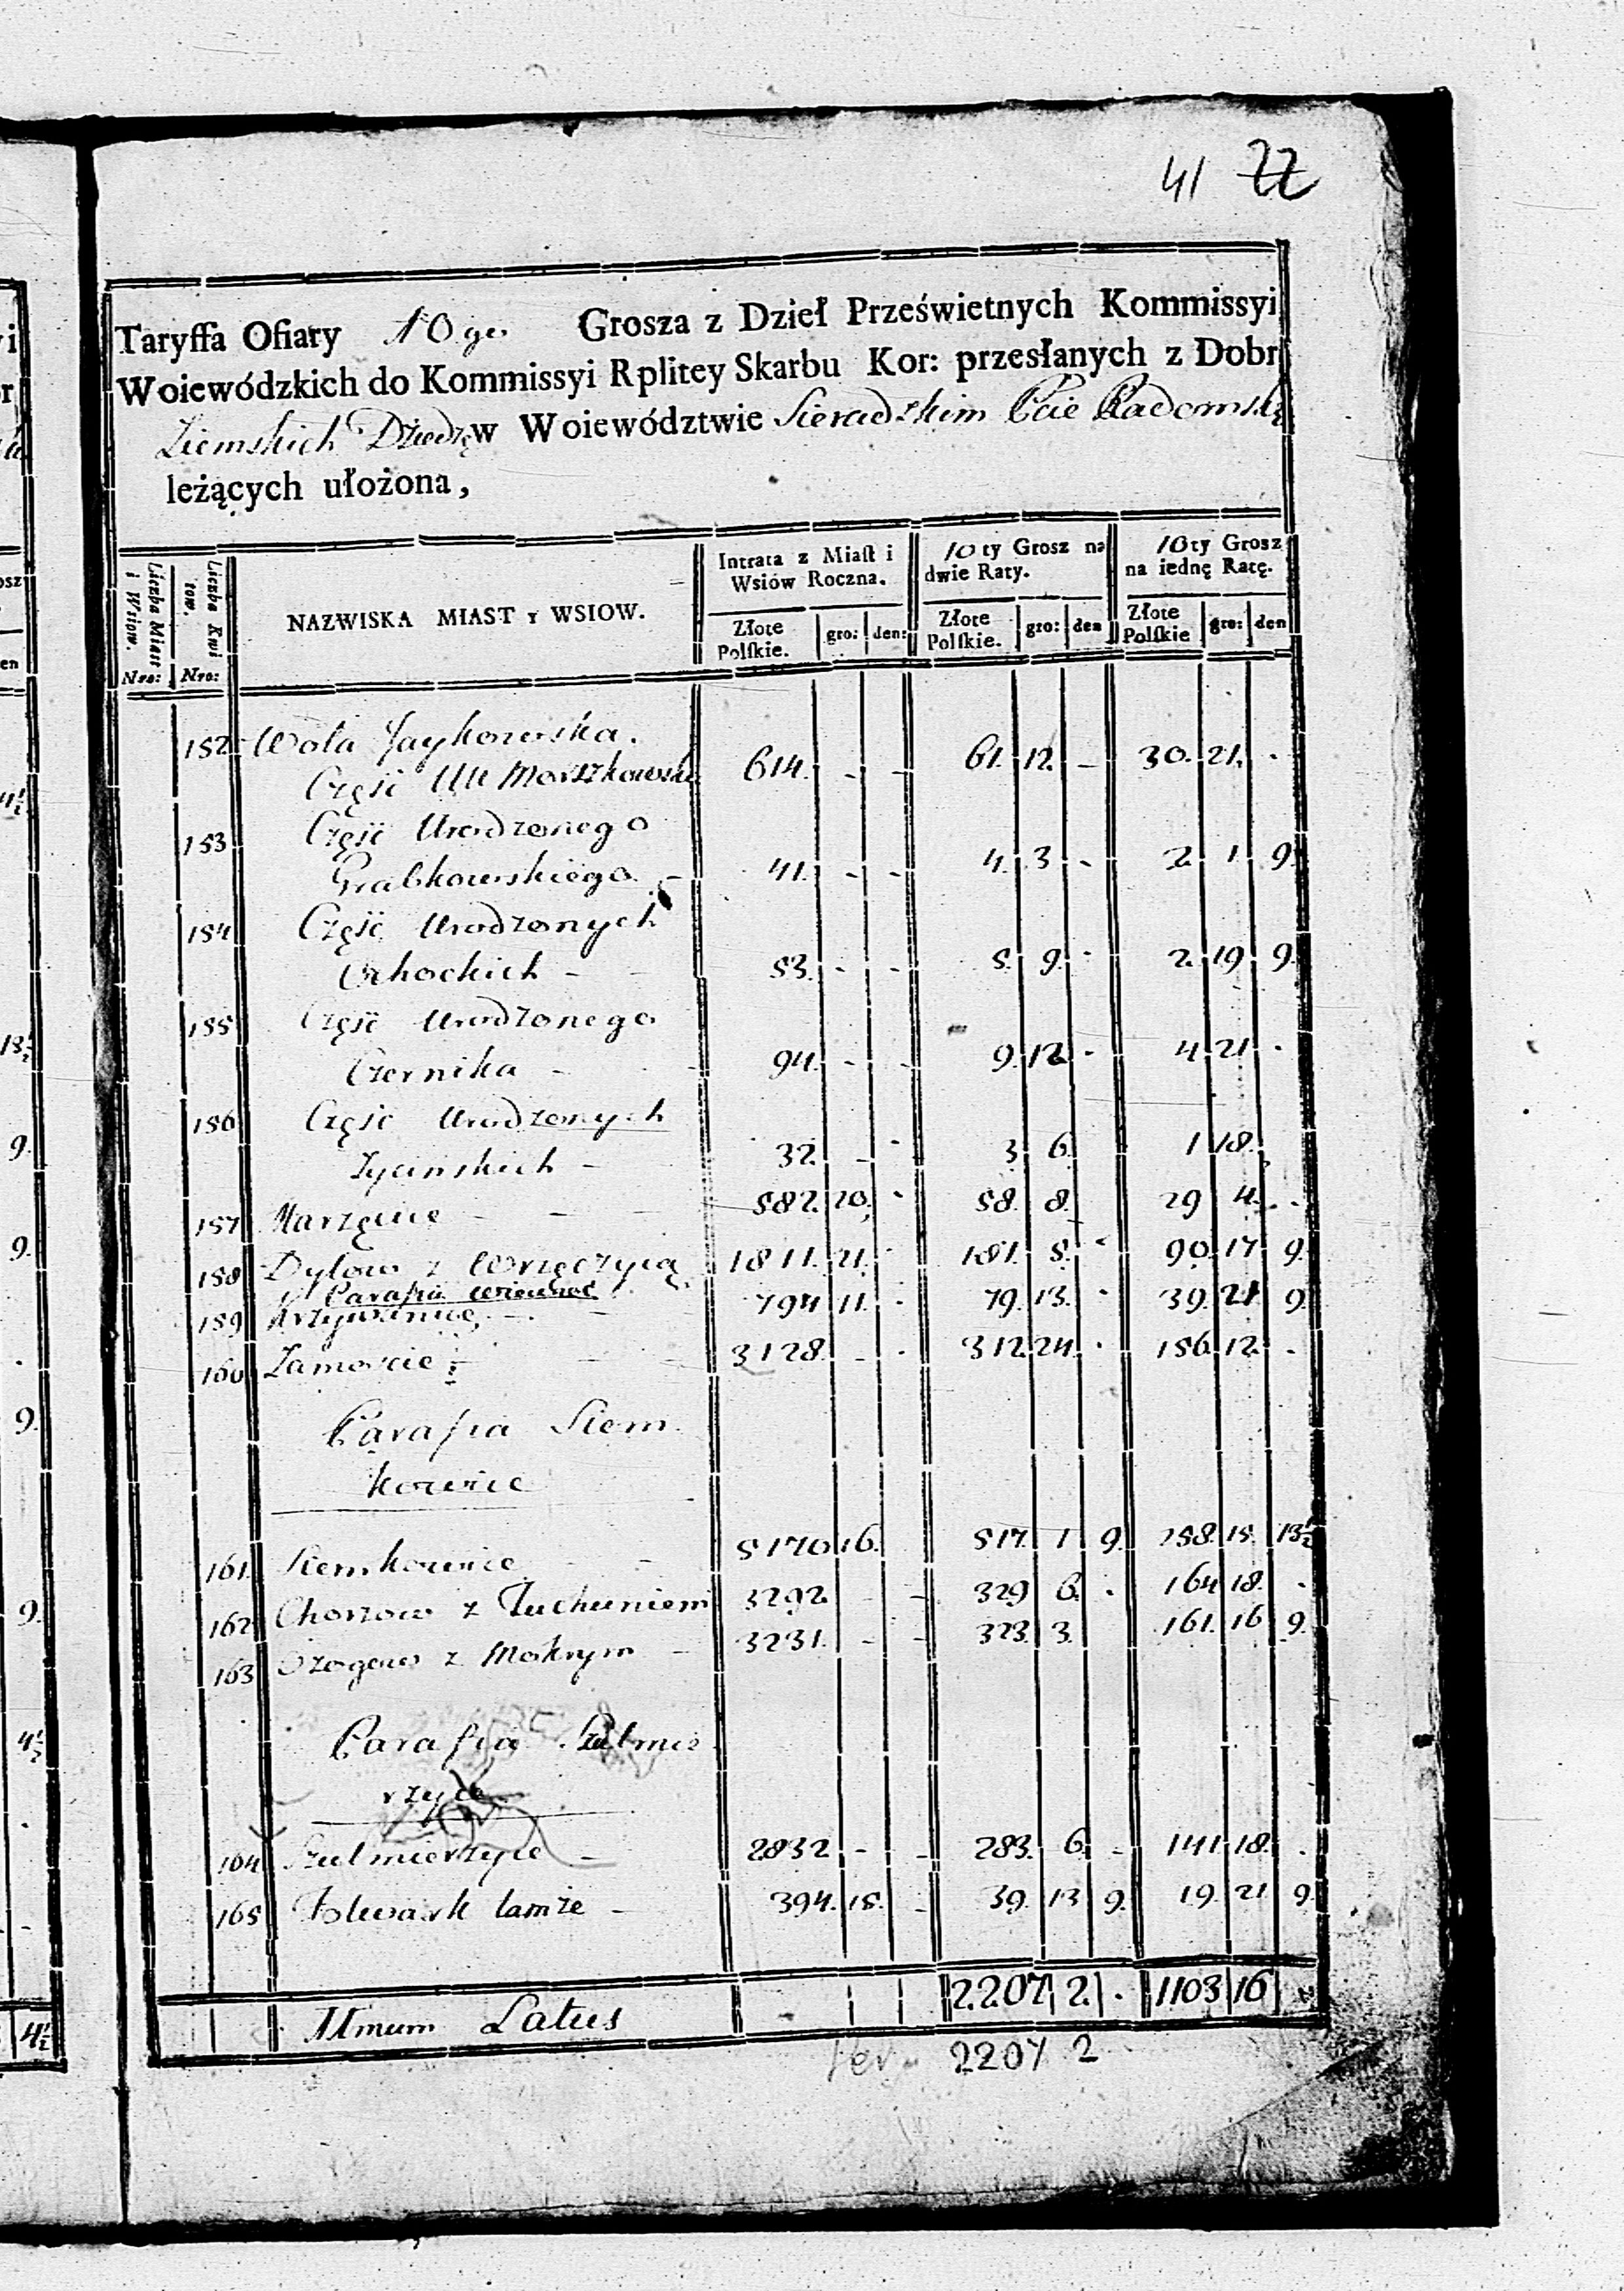 41 22
Taryffa Ofiary 10.go Grosza z Dzieł Prześwietnych Kommissyi
Woiewódzkich do Kommissyi Rplitey Skarbu Kor: przesłanych z Dobr
Ziemskich Dziedz: w Woiewództwie Sieradzkim Pcie Radomskq
leżących ułożona,
Liczba Miast i Wsiow. Nro: Liczba Kwitow. Nro: NAZWISKA MIAST y WSIOW. Intrata z Miast i Wsiów Roczna. 10ty Grosz na dwie Raty. 10ty Grosz na iednę Ratę.
Złote Polskie. gro: den: Złote Polskie. gro: den Złote Polskie gro: den
152 Wola Jaykowska.
Częsć UU Morszkowski 614. - - 61. 12. - 30. 21. .
153 Część Urodzonego
Grabkowskiego - 41. - - 4. 3. - 2. 1. 9.
154 Część Urodzonych
- 53. - - 5. 9. - 2. 19. 9.
155 Część Urodzonego
Czernika - 94. - - 9. 12. - 4. 21. .
156 Część Urodzonych
Życińskich - 32. - - 3. 6. 1. 18.
157 Marzęcice - - - 582. 20. - 58. 8. 29 4. .
158 Dylow z Wręczycą 1811. 21. - 181. 5. - 90. 17. 9.
Parafia
159 Krzywanice, - - 794. 11. - 79. 13. - 39. 21. 9.
160 Zamoscie - - 3128. - - 312. 24. . 156. 12. .
Parafia Siem
kowice
161. Siemkowice - 5170. 16. 517. 1. 9. 258. 15. 13½
162 Chorzow z 3292. - - 329 6. . 164. 18. .
163 Ozogow z Mokrym - 3231. - - 323. 3. 161. 16. 9.
Parafia Sulmie
rzyce
164 Sulmierzyce - 2832 - - 283. 6. - 141. 18. .
165 Folwark tamże - 394. 15. - 39. 13. 9. 19. 21. 9.
Latus 2207 2. . 1103 16
Ver 2207 2